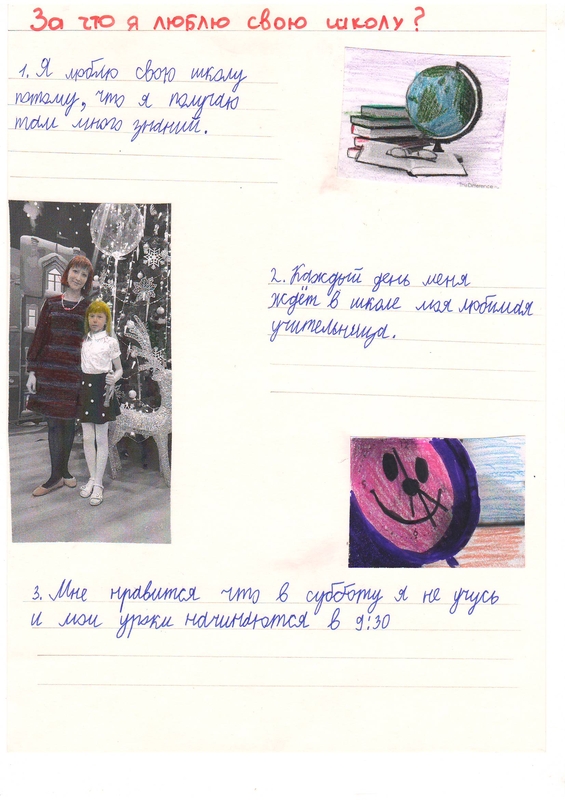 За что я люблю свою школу?
1. Я люблю свою школу
потому, что я получаю
там много знаний.
2. Каждый день меня
ждёт в школе моя любимая
учительница.
3. Мне нравится что в субботу я не учусь
и мои уроки начинаются в 9:30